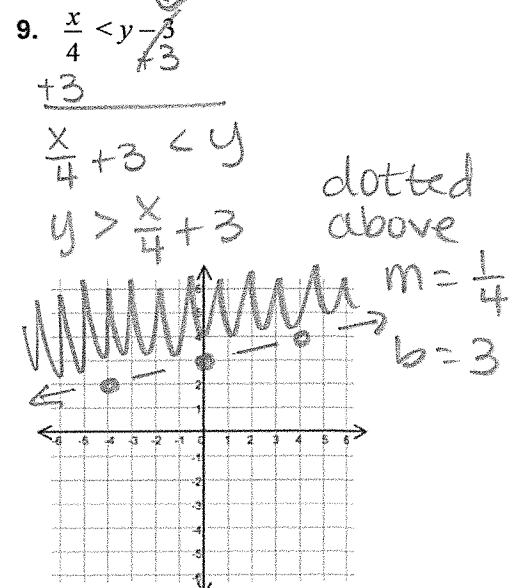 9. x/4 < y - 3
+3 +3
x/4 + 3 < y
y > x/4 + 3
dotted
above
m = 1/4
b = 3
6
4
2
1
-6 -5 -4 -3 -2 -1 0 1 2 3 4 5 6
-1
-2
-3
-4
-5